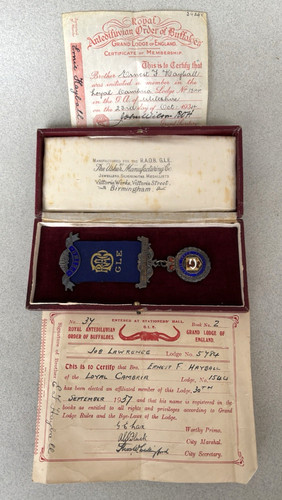 Royal
Antediluvian Order of Buffaloes
GRAND LODGE OF ENGLAND.
CERTIFICATE OF MEMBERSHIP
This is to Certify that
Brother Ernest F Hayball
was initiated a member in the
Loyal Cambria Lodge No
on the G.L. of
the 23rd day of Oct. 1934
John Wilson ROH
Ernie Hayball
MANUFACTURED FOR THE R.A.O.B. G.L.E.
The Alpha Manufacturing Co
Victoria Works, Victoria Street,
Birmingham
G.L.E
No. 37
Road No. 2
G.L.E.
ROYAL ANTEDILUVIAN
ORDER OF BUFFALOES.
GRAND LODGE OF
ENGLAND.
JOE LAWRENCE Lodge No. 5784
This is to Certify that Bro. ERNEST F HAYBALL
of the LOYAL CAMBRIA Lodge, No. 1544
has been elected an affiliated member of this Lodge, 30TH
SEPTEMBER 1957 and that his name is registered in the
books as entitled to all rights and privileges according to Grand
Lodge Rules and the Bye-Laws of the Lodge.
Worthy Primo.
City Marshal.
City Secretary.
E F Hayball